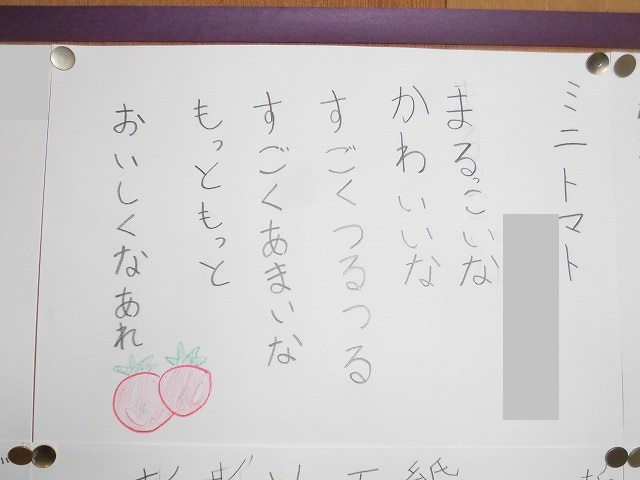 ミニトマト
まるっこいな
かわいいな
すごくつるつる
すごくあまいな
もっともっと
おいしくなあれ